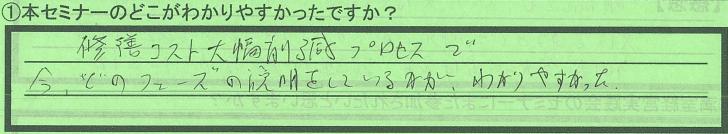 ①本セミナーのどこがわかりやすかったですか？
修繕コスト大幅削減プロセスで
今、"どのフェーズ"の説明をしているのかが、わかりやすかった。